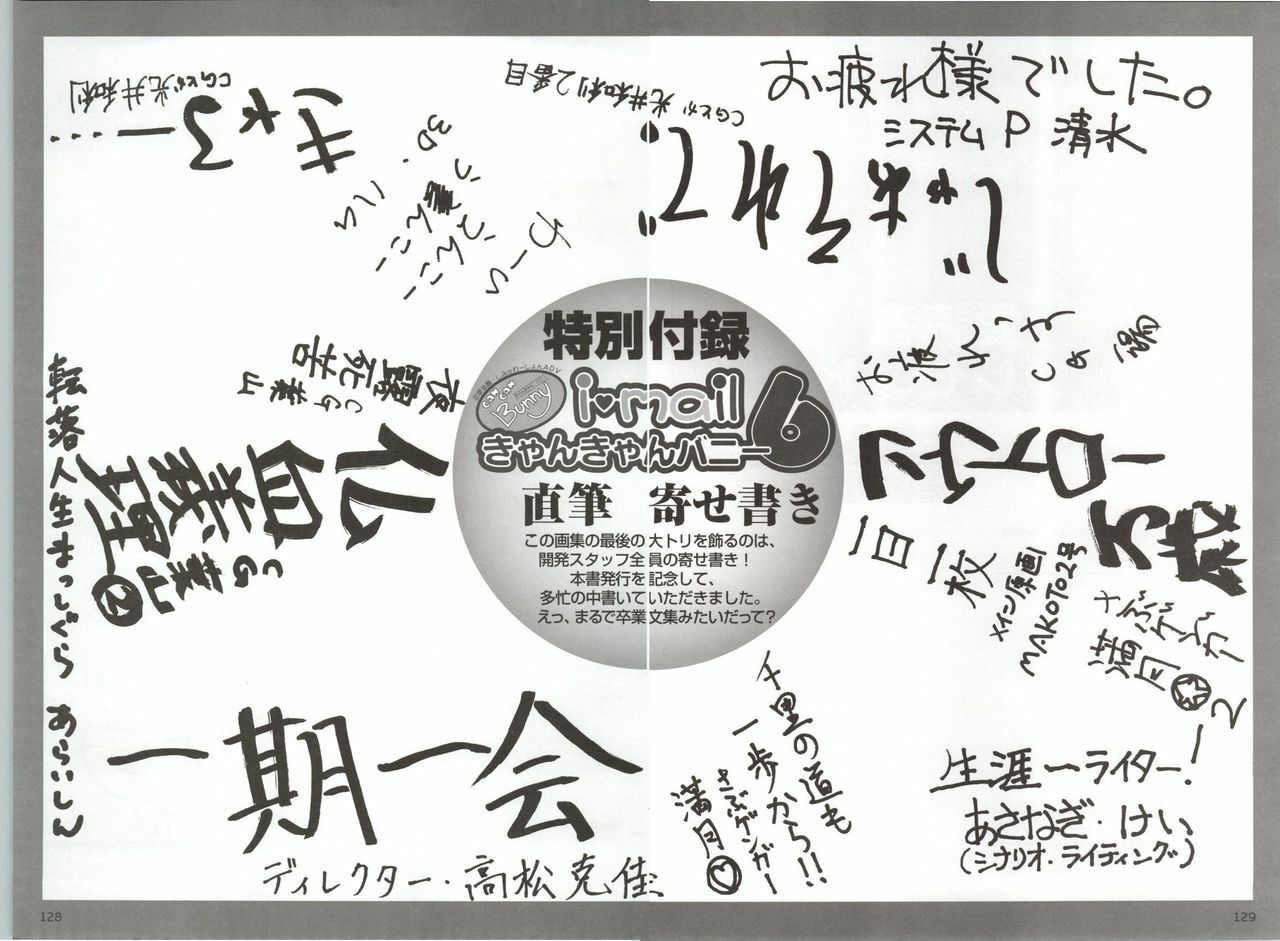 特別付録
恋愛体験・しみゅれーしょんADV
CAN CAN Bunny
i♥mail
きゃんきゃんバニー6
直筆 寄せ書き
この画集の最後の大トリを飾るのは、
開発スタッフ全員の寄せ書き！
本書発行を記念して、
多忙の中書いていただきました。
えっ、まるで卒業文集みたいだって？
お疲れ様でした。
システムP 清水
CGとか 光井和利
CGとか 光井和利2番目
お疲れっす
CG 湯
一日一枚
メイン原画
MAKOTO2号
さぶゲンガー2
満月☆
生涯一ライター！
あさなぎ・けい
(シナリオ・ライティング)
千里の道も
一歩から!!
さぶゲンガー
満月♡
一期一会
ディレクター・高松克佳
仏血義理
CG葉山②
夜露死苦
CG葉山
転落人生まっしぐら あらいしん
128
129